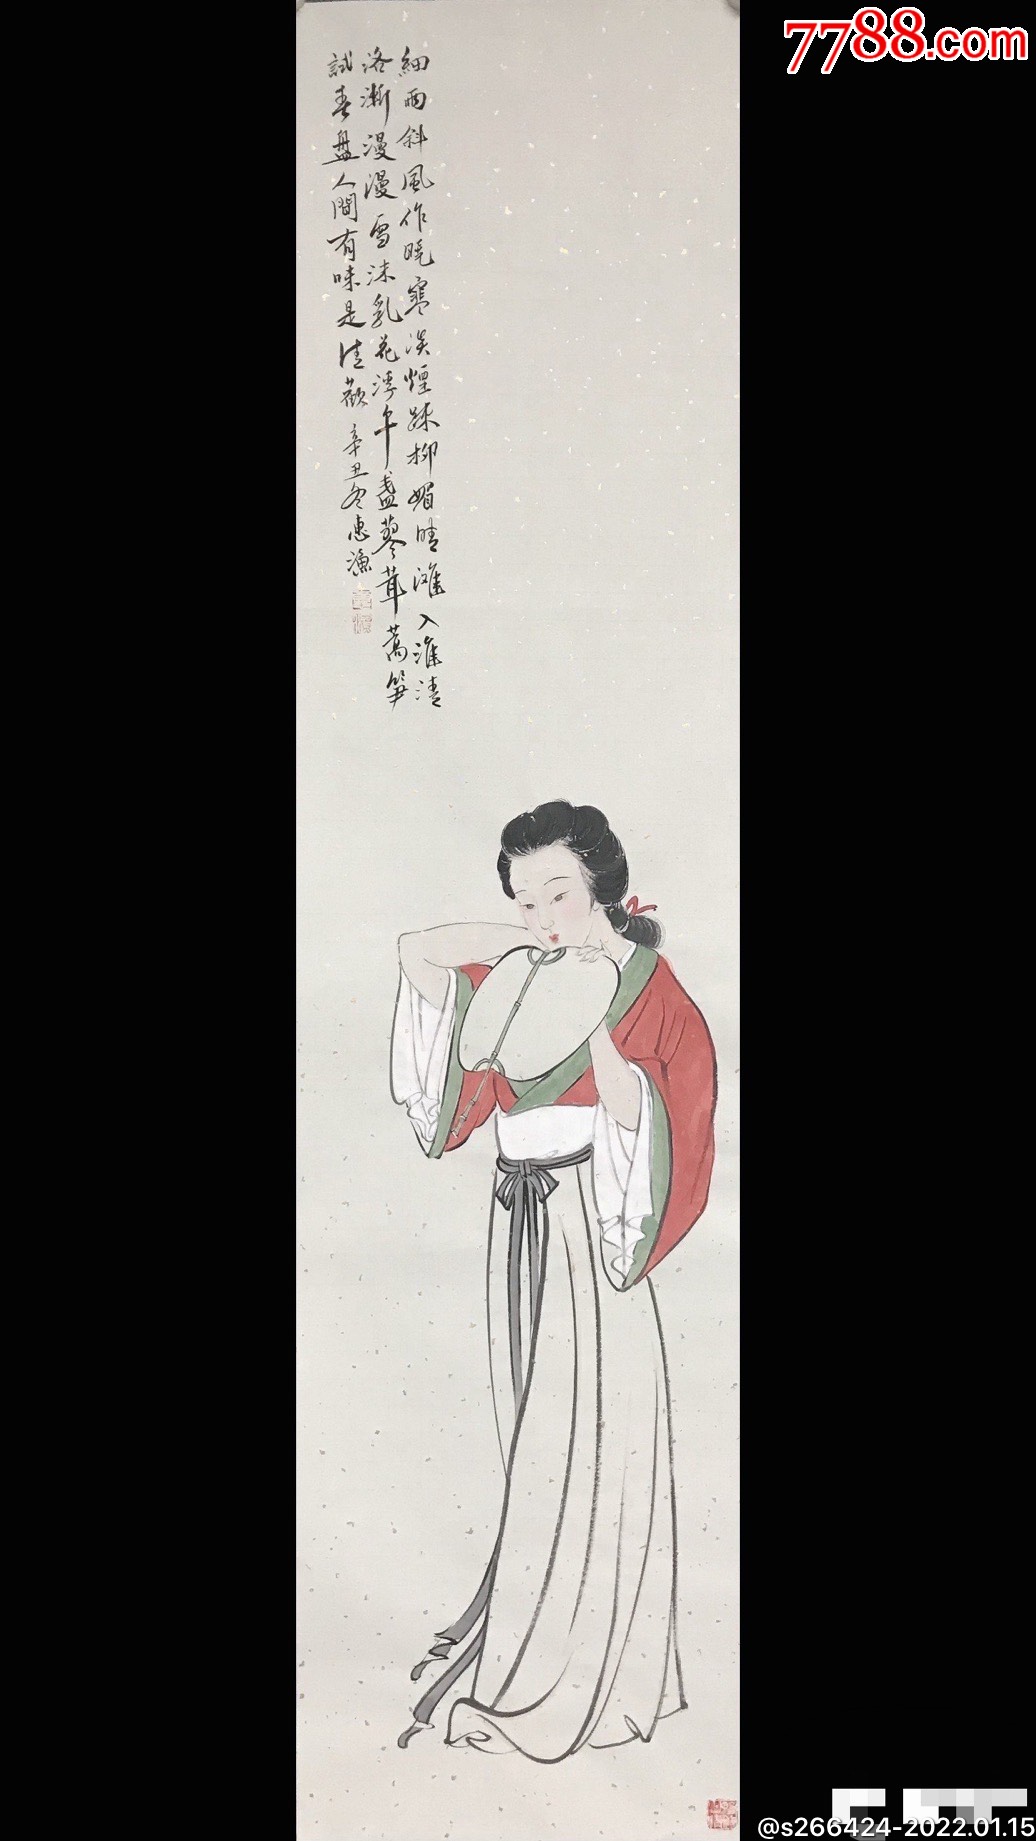 7788.com
細雨斜風作曉寒淡煙疎柳媚晴灘入淮清
洛漸漫漫雪沫乳花浮午盞蓼茸蒿笋
試春盤人間有味是清歡 辛丑冬惠漁
@s266424-2022.01.15